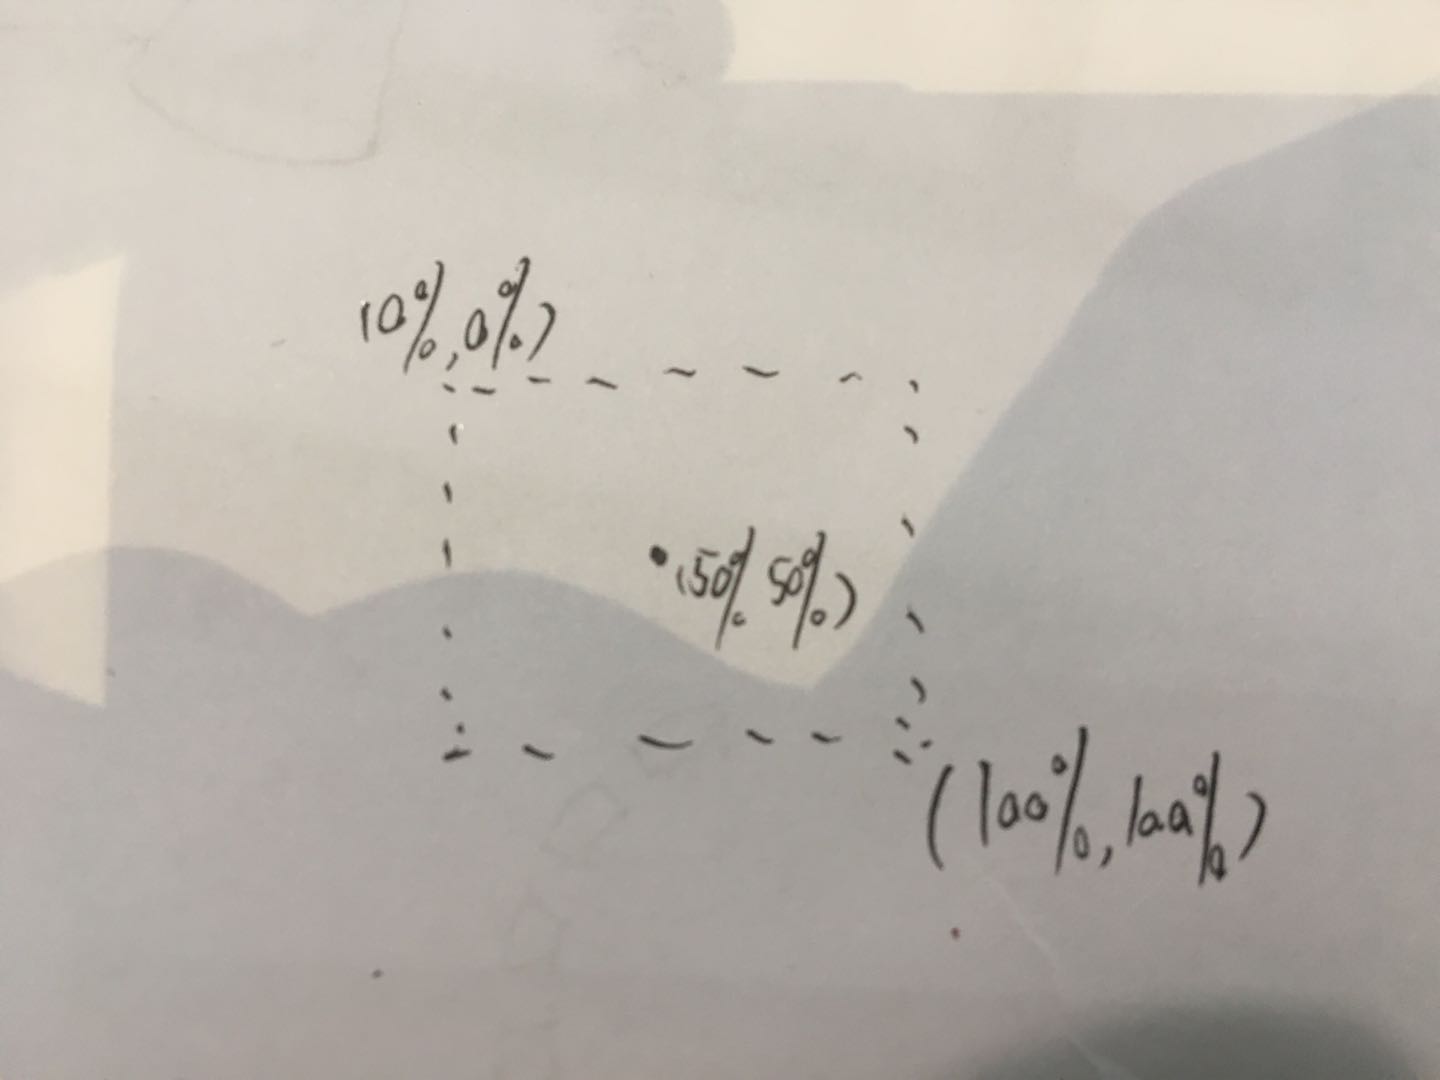 (0%,0%)
(50% 50%)
(100%,100%)